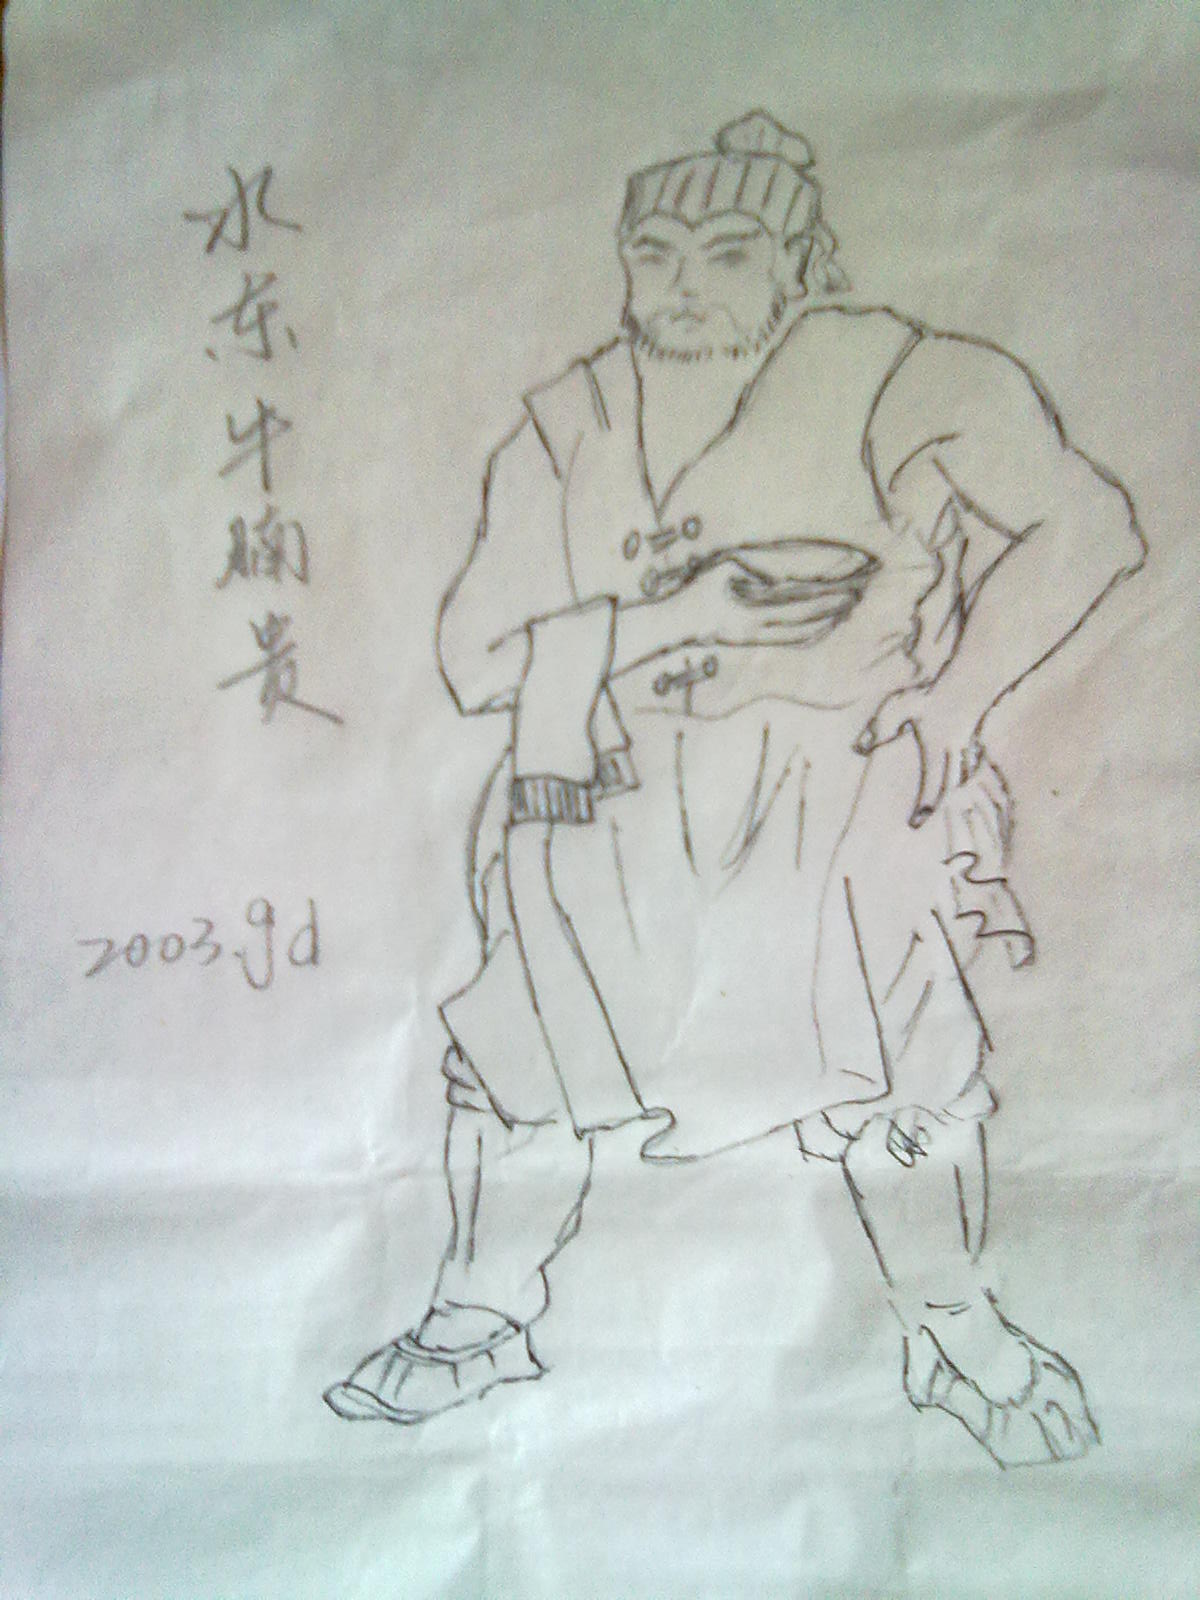 水东牛腩贵
2003.gd